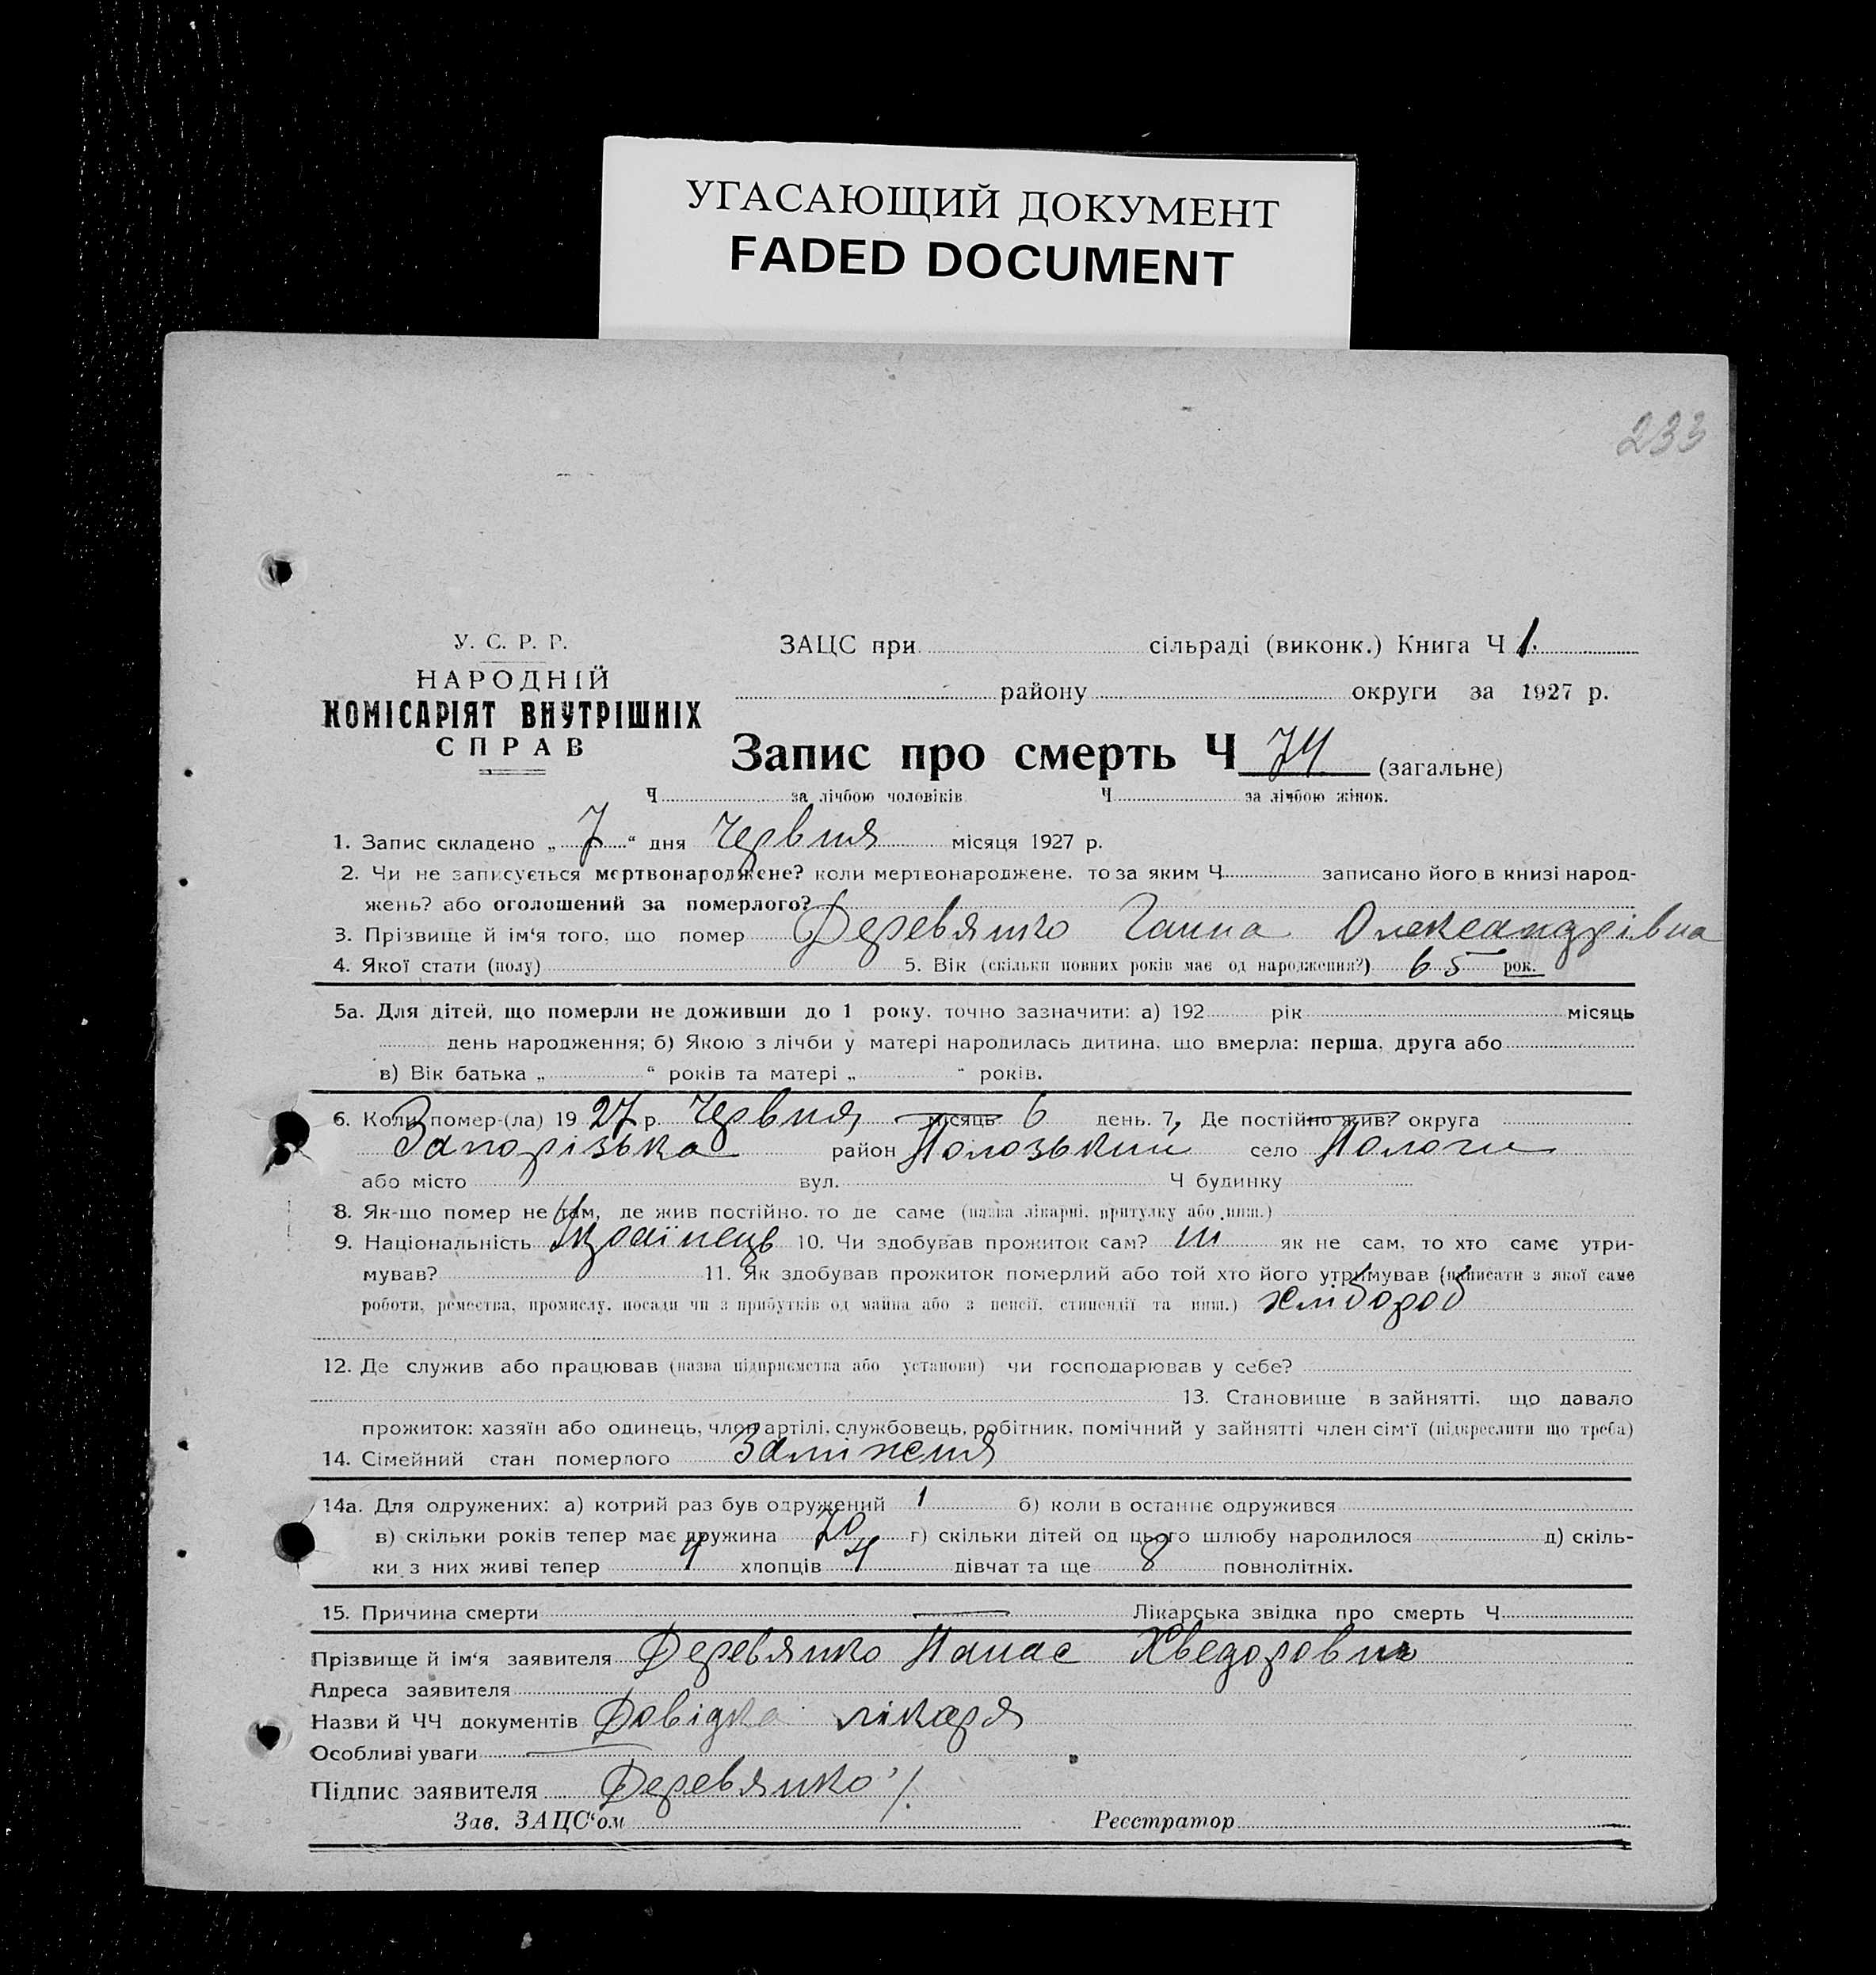 УГАСАЮЩИЙ ДОКУМЕНТ
FADED DOCUMENT
233
У. С. Р. Р.
НАРОДНІЙ
КОМІСАРІЯТ ВНУТРІШНІХ
СПРАВ
ЗАЦС при сільраді (виконк.) Книга Ч 1.
району округи за 1927 р.
Запис про смерть Ч 74 (загальне)
Ч за лічбою чоловіків Ч за лічбою жінок.
1. Запис складено „ 7 “ дня Червня місяця 1927 р.
2. Чи не записується мертвонароджене? коли мертвонароджене, то за яким Ч записано його в книзі народ-
жень? або оголошений за померлого?
3. Прізвище й ім‘я того, що помер Деревянко Ганна Олександрівна
4. Якої стати (полу) 5. Вік (скільки повних років має од народження?) 65 рок.
5а. Для дітей, що померли не доживши до 1 року, точно зазначити: а) 192 рік місяць
день народження; б) Якою з лічби у матері народилась дитина, що вмерла: перша, друга або
в) Вік батька „ “ років та матері „ “ років.
6. Коли помер-(ла) 19 27 р. Червня місяць 6 день. 7, Де постійно жив? округа
Запорізька район Пологський село Пологи
або місто вул. Ч будинку
8. Як-що помер не там, де жив постійно, то де саме (назва лікарні, притулку або инш.)
9. Національність Українець 10. Чи здобував прожиток сам? ні як не сам, то хто саме утри-
мував? 11. Як здобував прожиток померлий або той хто його утримував (написати з якої саме
роботи, ремества, промислу, посади чи з прибутків од майна або з пенсії, стипендії та инш.) хлібороб
12. Де служив або працював (назва підприємства або установи) чи господарював у себе?
13. Становище в зайнятті, що давало
прожиток: хазяїн або одинець, член артілі, службовець, робітник, помічний у зайнятті член сім‘ї (підкреслити що треба)
14. Сімейний стан померлого Заміжня
14а. Для одружених: а) котрий раз був одружений 1 б) коли в останнє одружився
в) скільки років тепер має дружина 70 г) скільки дітей од цього шлюбу народилося д) скіль-
ки з них живі тепер 4 хлопців 4 дівчат та ще 8 повнолітніх.
15. Причина смерти Лікарська звідка про смерть Ч
Прізвище й ім‘я заявителя Деревянко Панас Хведорович
Адреса заявителя
Назви й ЧЧ документів Довідка лікаря
Особливі уваги
Підпис заявителя Деревянко
Зав. ЗАЦС‘ом Реєстратор